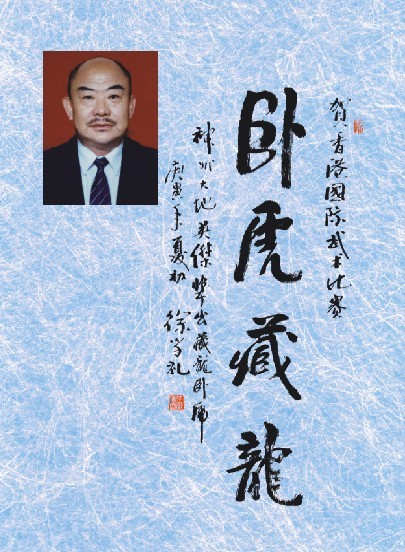 賀香港國際武术比賽
卧虎藏龍
神州大地英傑輩出藏龍卧虎
庚寅年夏初
徐学礼